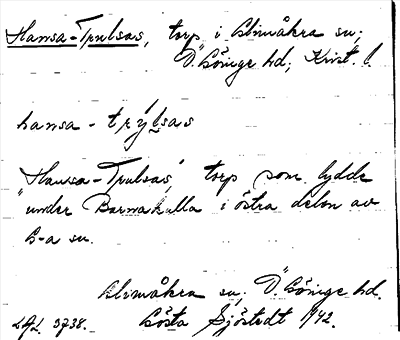 Hansa-Trulsas, torp i Glimåkra sn;
Ö. Göinge hd; Krist. l.
hansa-trýlsas
"Hansa-Trulsas", torp som lydde
under Barnakälla i östra delen av
G-a sn.
Glimåkra sn; Ö. Göinge hd.
LGL 3738. Gösta Sjöstedt 1942.